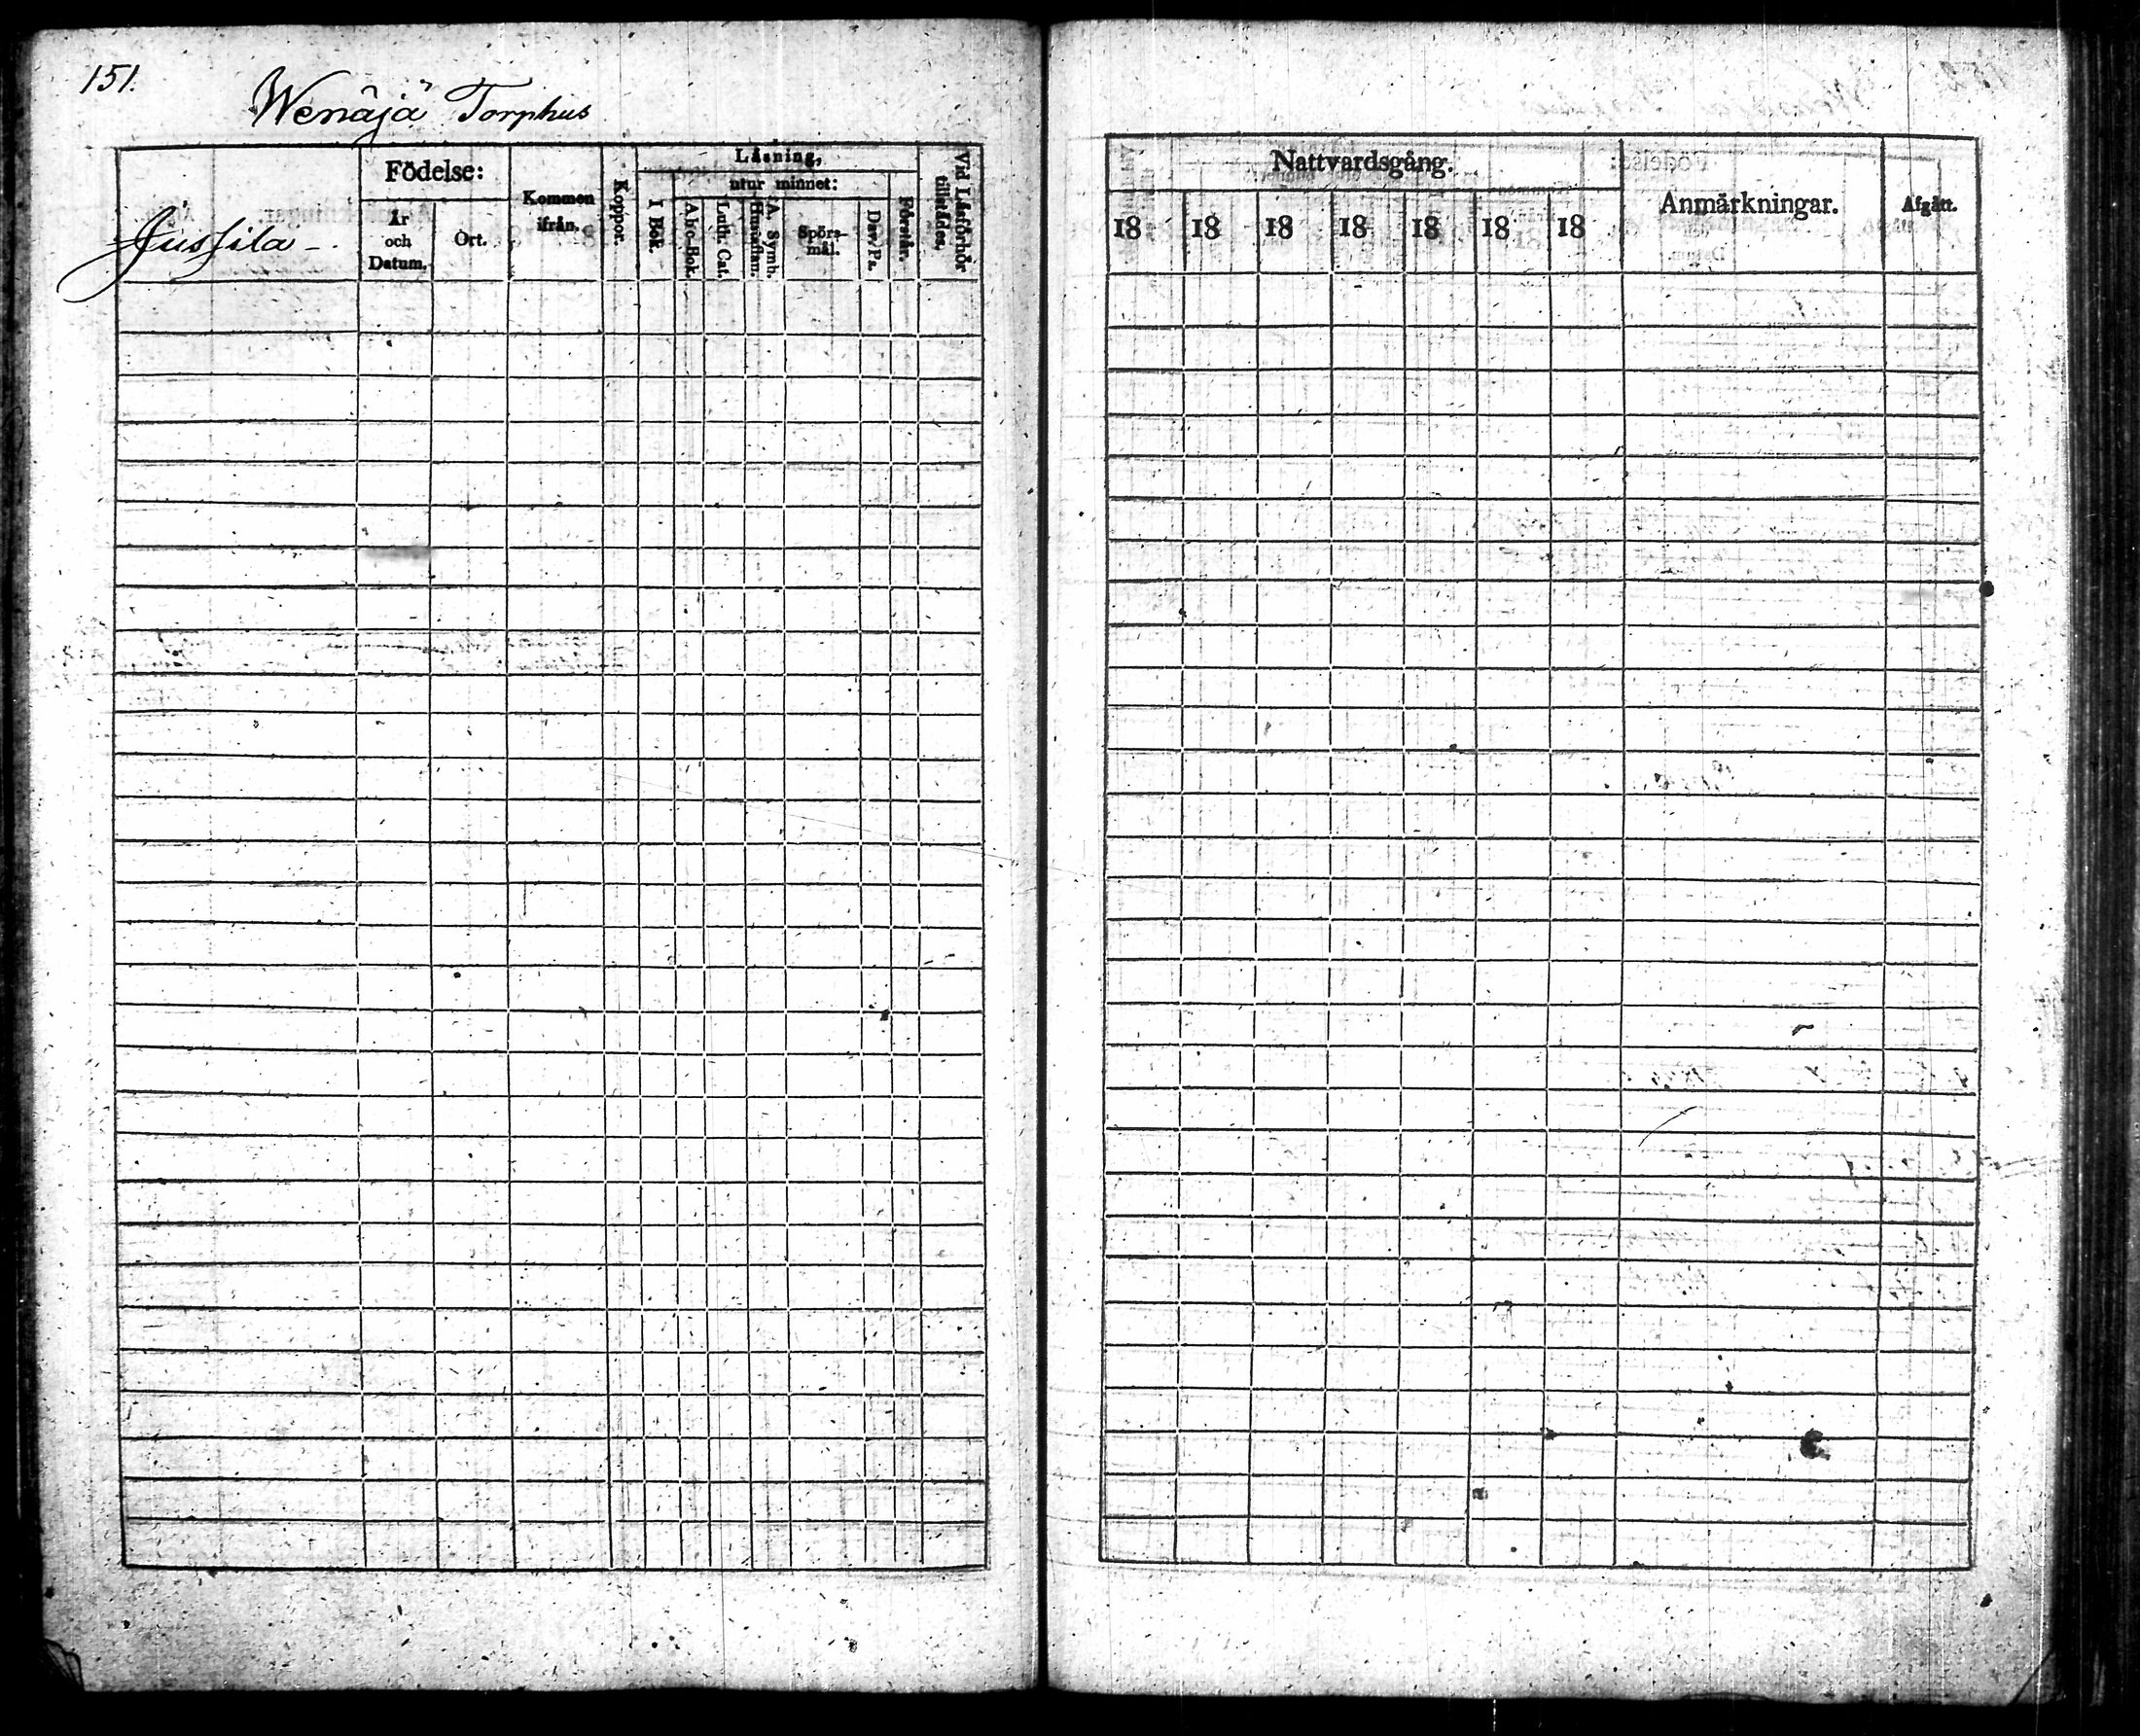 151.
Wenäjä Torphus
Jussila
Födelse:
År
och
Datum.
Ort.
Kommen
ifrån.
Koppor.
Läsning,
utur minnet:
I Bok.
Abc-Bok.
Luth. Cat.
A. Symb.
Hustaflan.
Spörs-
mål.
Dav. Ps.
Förstår.
Vid Läsförhör
tillstädes.
Nattvardsgång.
18 18 18 18 18 18 18
Anmärkningar.
Afgått.